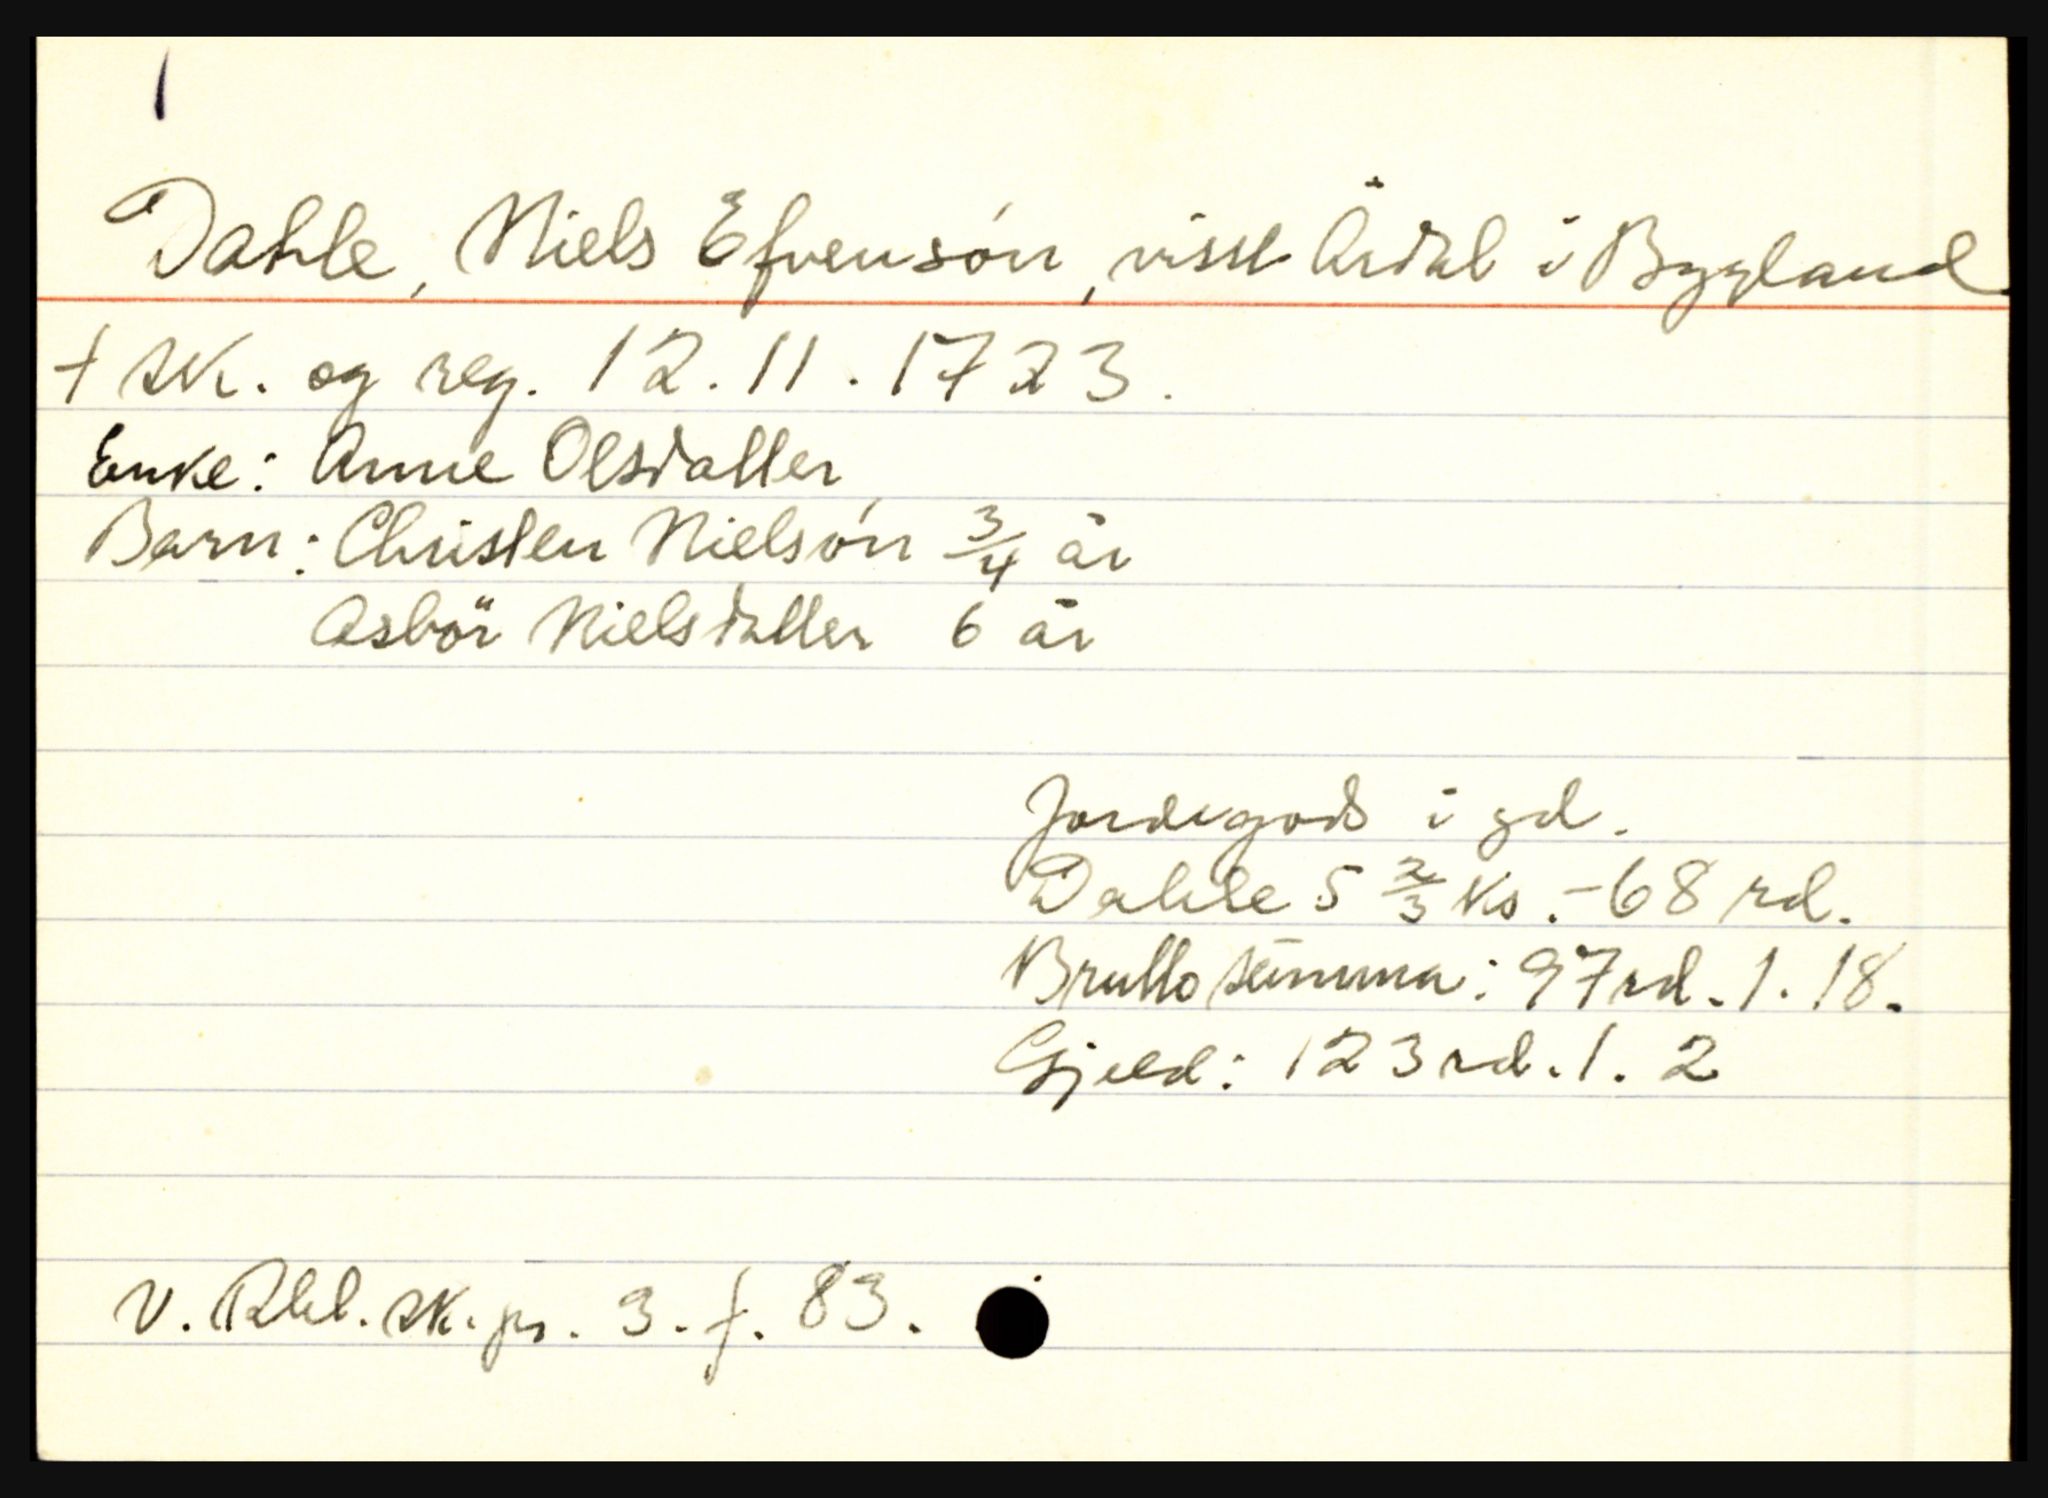 Dahle, Niels Efvensón, visst Årdal i Bygland
† sk. og reg. 12.11.1723.
Enke: Anne Olsdatter
Barn: Christen Nielsón 3/4 år
Asbör Nielsdatter 6 år
Jordegods i gd.
Dahle 5 2/3 ks. - 68 rd.
Brutto summa: 97 rd. 1. 18.
Gjeld: 123 rd. 1. 2
V. Rbl. sk. pr. 3. f. 83.